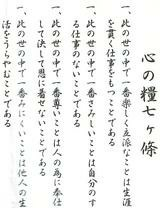 心の糧七ヶ條
一、此の世の中で一番楽しく立派なことは生涯
を貫く仕事をもつことである
一、此の世の中で一番さみしいことは自分のす
る仕事のないことである
一、此の世の中で一番尊いことは人の為に奉仕
して決して恩に着せないことである
一、此の世の中で一番みにくいことは他人の生
活をうらやむことである